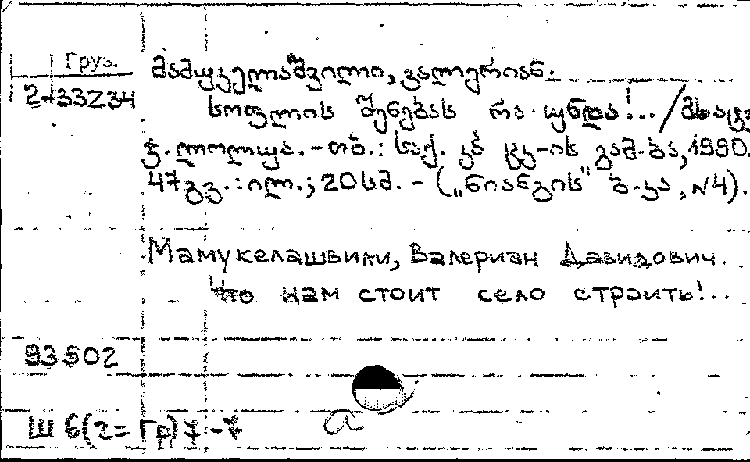 Груз.
მამუკელაშვილი, ვალერიან.
2-33234
სოფლის შენებას რა უნდა!.. / მხატვ.
ჯ. ლოლუა. - თბ.: საქ. კპ ცკ-ის გამ-ბა, 1990.
47 გვ. : ილ.; 20 სმ. - („ნიანგის" ბ-კა, N4).
Мамукелашвили, Валериан Давидович.
Что нам стоит село строить!..
93502
Ш 6(2=Гр)7-7
а